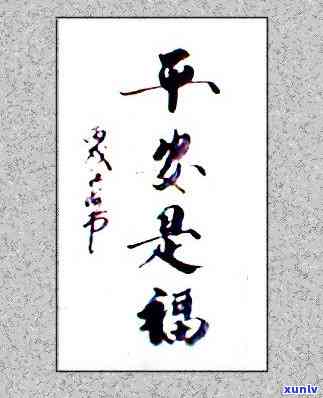 平安是福
丙戌
xunlv